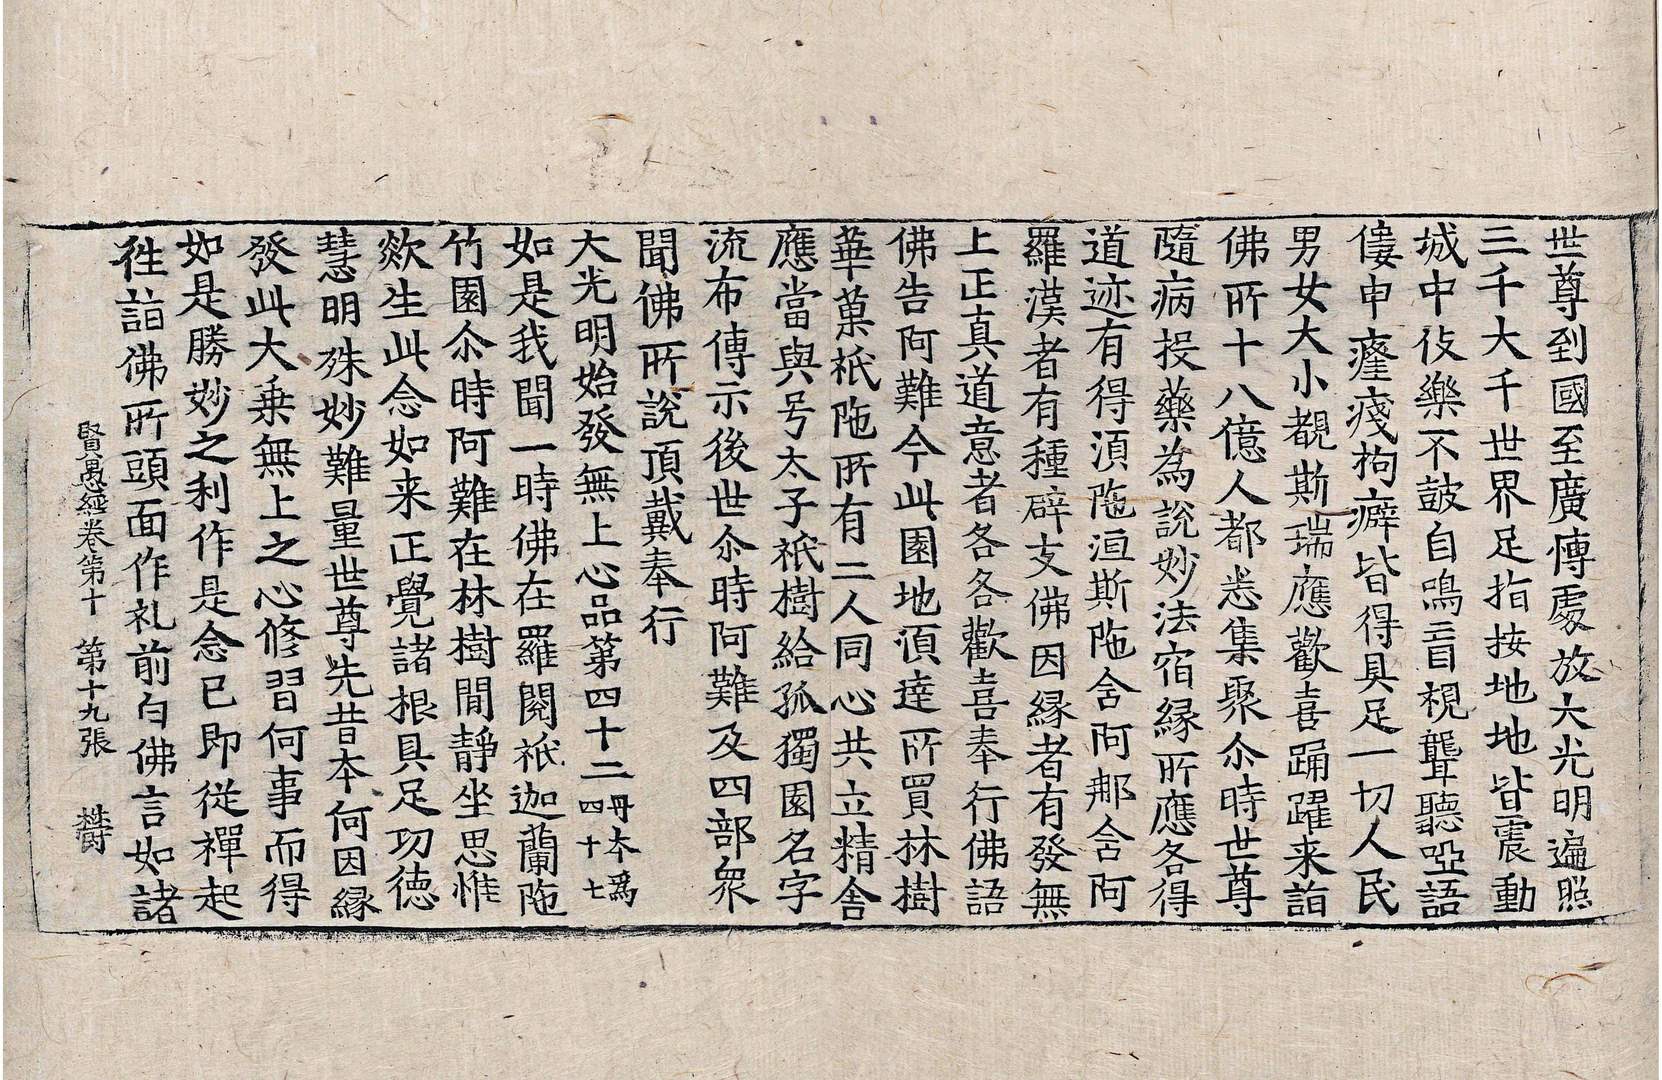 世尊到國至廣愽處放大光明遍照
三千大千世界足指按地地皆震動
城中伎樂不皷自鳴盲視聾聽啞語
僂申癃殘拘癖皆得具足一切人民
男女大小覩斯瑞應歡喜踊躍来詣
佛所十八億人都悉集聚尒時世尊
隨病投藥為說妙法宿緣所應各得
道迹有得湏陁洹斯陁含阿那含阿
羅漢者有種辟支佛因緣者有發無
上正真道意者各各歡喜奉行佛語
佛告阿難今此園地湏達所買林樹
華菓祇陁所有二人同心共立精舍
應當與号太子祇樹給孤獨園名字
流布傳示後世尒時阿難及四部衆
聞佛所說頂戴奉行
大光明始發無上心品第四十二 丹本爲四十七
如是我聞一時佛在羅閱祇迦蘭陁
竹園尒時阿難在林樹間靜坐思惟
欻生此念如来正覺諸根具足功德
慧明殊妙難量世尊先昔本何因緣
發此大乗無上之心修習何事而得
如是勝妙之利作是念已即從禪起
徃詣佛所頭面作礼前白佛言如諸
賢愚經卷第十 第十九張